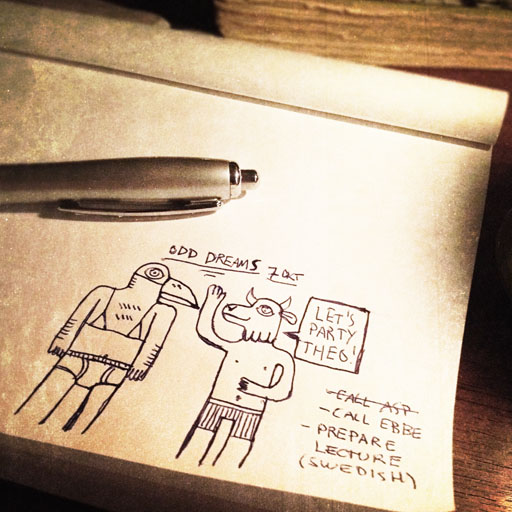 ODD DREAMS 7 OKT
LET'S
PARTY
THEO!
- CALL ASP
- CALL EBBE
- PREPARE
LECTURE
(SWEDISH)